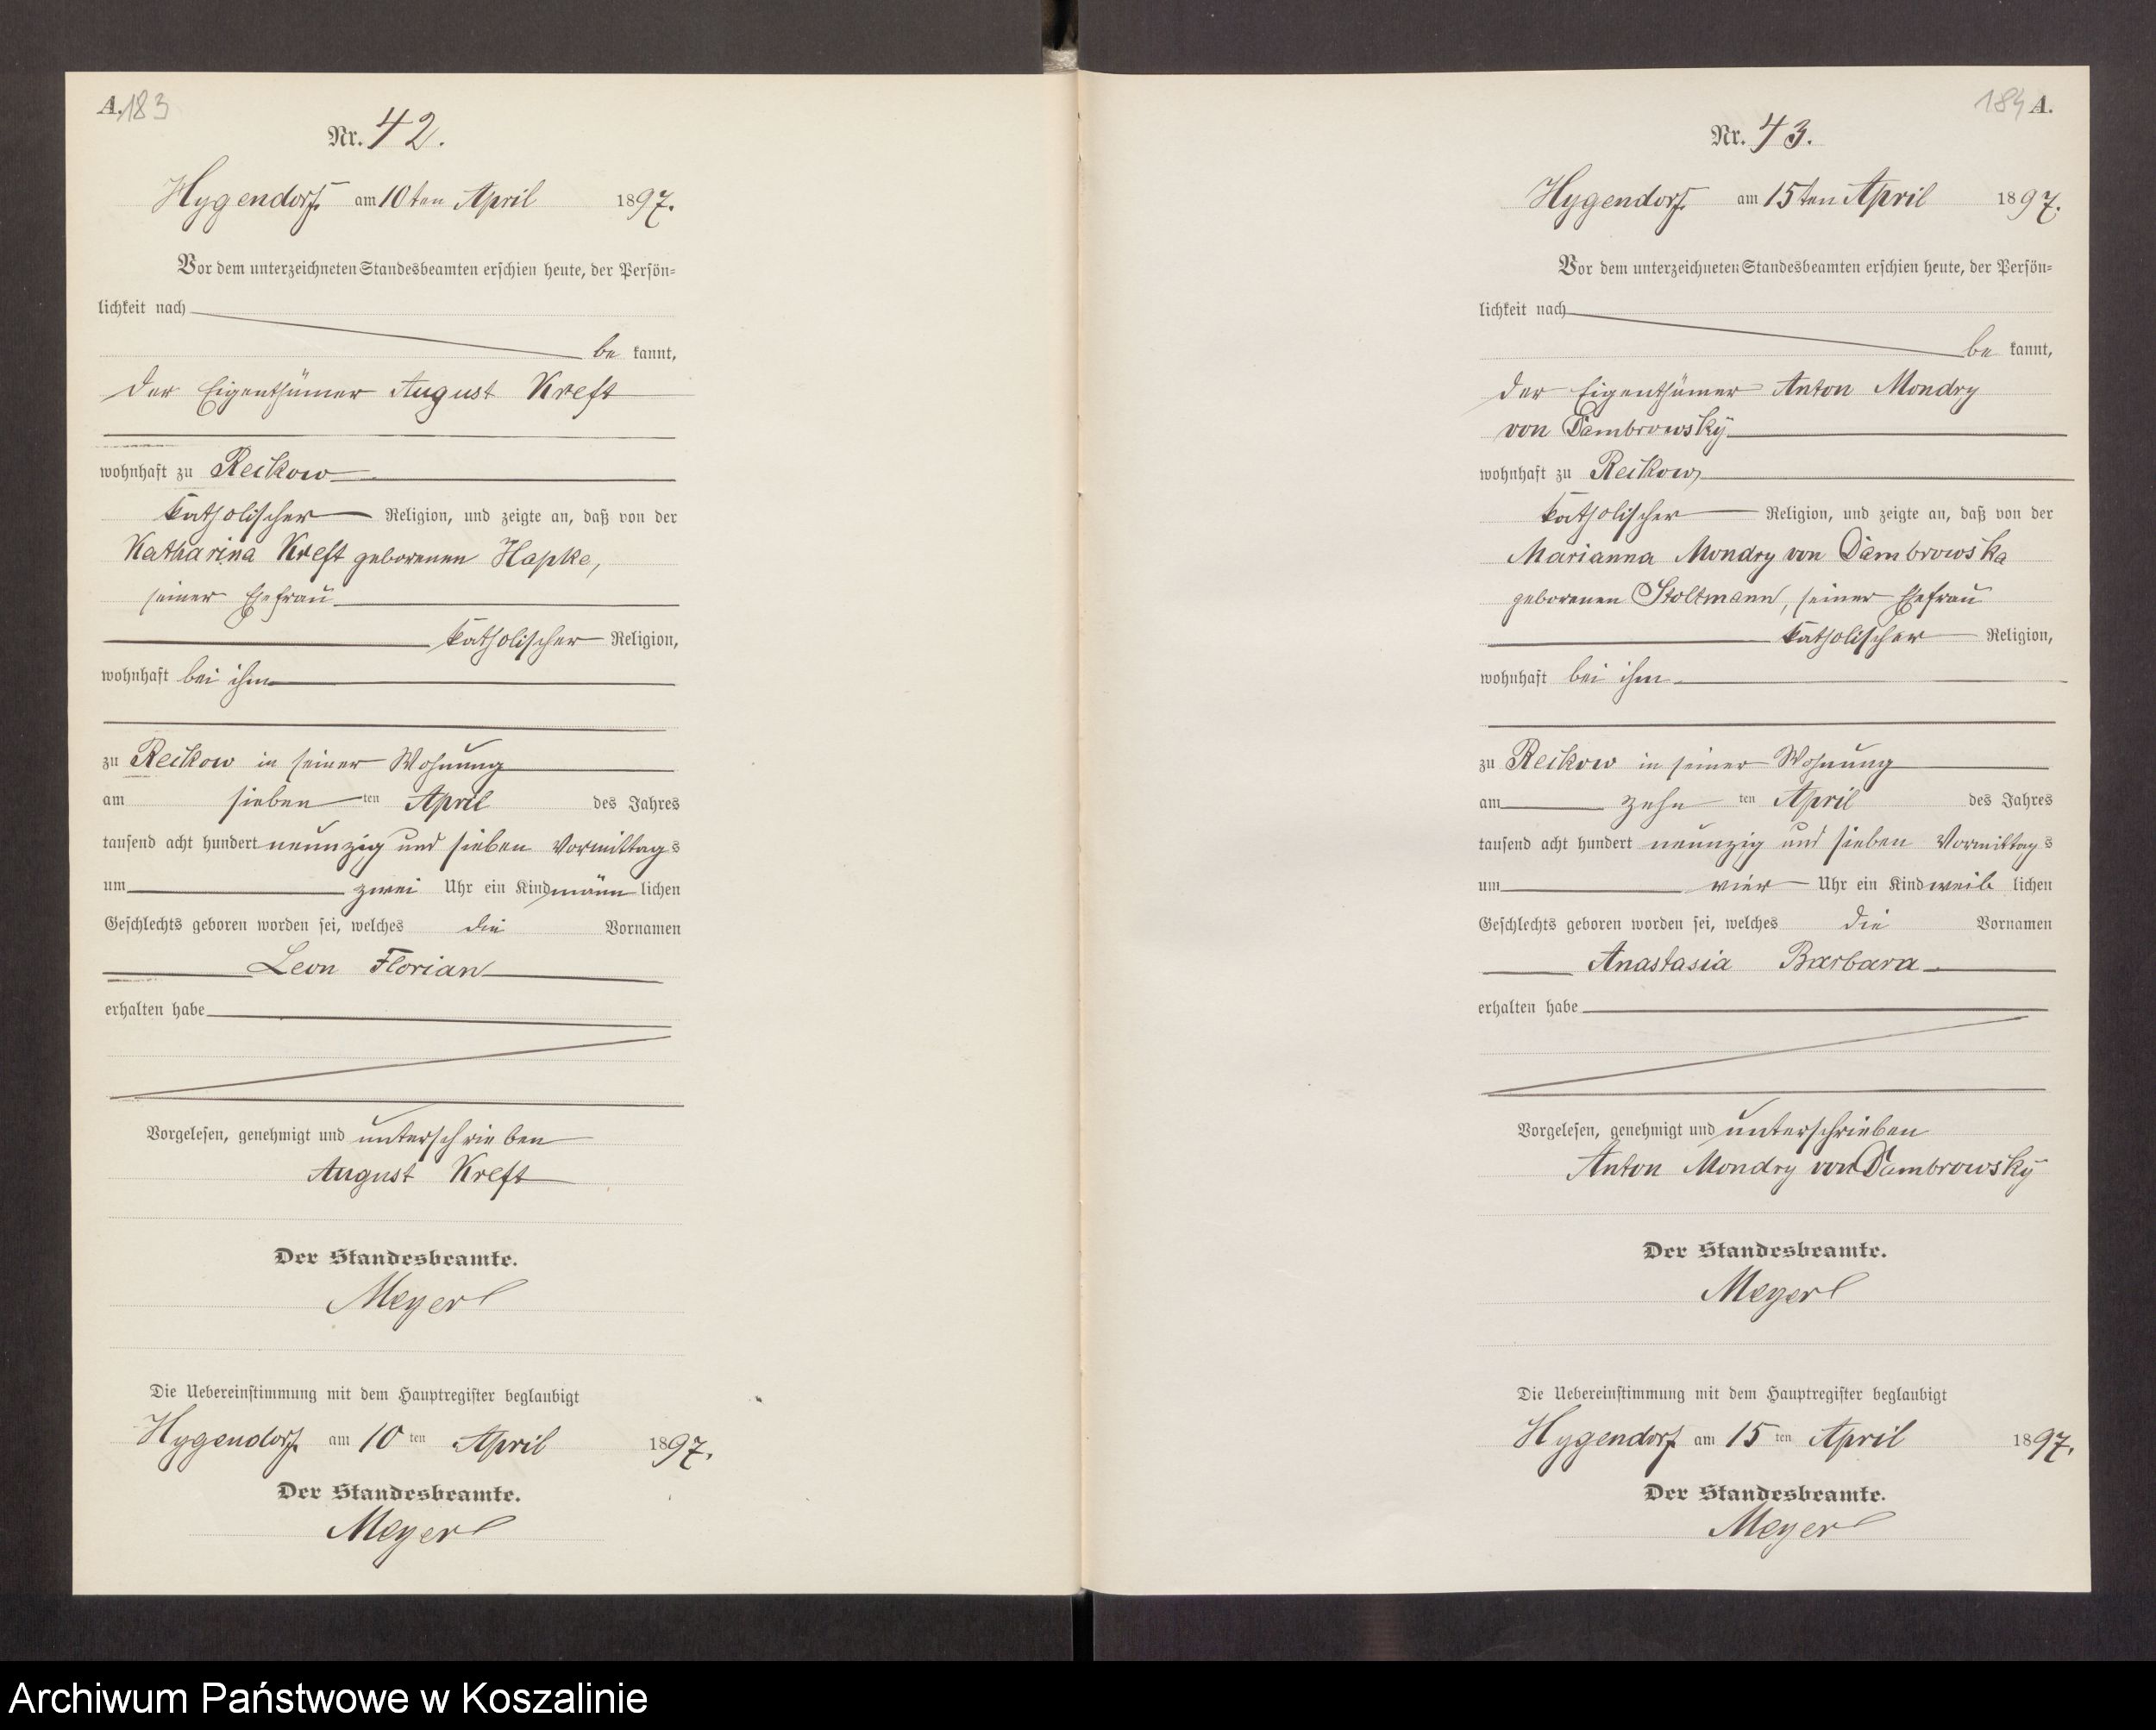 A. 183
Nr. 42.
Hygendorf am 10ten April 1897.
Vor dem unterzeichneten Standesbeamten erschien heute, der Persön=
lichkeit nach
be kannt,
der Eigenthümer August Kreft
wohnhaft zu Reckow
katholischer Religion, und zeigte an, daß von der
Katharina Kreft geborenen Hapke,
seiner Ehefrau
katholischer Religion,
wohnhaft bei ihm
zu Reckow in seiner Wohnung
am sieben ten April des Jahres
tausend acht hundert neunzig und sieben Vormittags
um zwei Uhr ein Kind männ lichen
Geschlechts geboren worden sei, welches die Vornamen
Leon Florian
erhalten habe
Vorgelesen, genehmigt und unterschrieben
August Kreft
Der Standesbeamte.
Meyer
Die Uebereinstimmung mit dem Hauptregister beglaubigt
Hygendorf am 10 ten April 1897.
Der Standesbeamte.
Meyer
184 A.
Nr. 43.
Hygendorf am 15ten April 1897.
Vor dem unterzeichneten Standesbeamten erschien heute, der Persön=
lichkeit nach
be kannt,
der Eigenthümer Anton Mondry
von Dambrowsky
wohnhaft zu Reckow
katholischer Religion, und zeigte an, daß von der
Marianna Mondry von Dambrowska
geborenen Stoltmann, seiner Ehefrau
katholischer Religion,
wohnhaft bei ihm
zu Reckow in seiner Wohnung
am zehn ten April des Jahres
tausend acht hundert neunzig und sieben Vormittags
um vier Uhr ein Kind weib lichen
Geschlechts geboren worden sei, welches die Vornamen
Anastasia Barbara
erhalten habe
Vorgelesen, genehmigt und unterschrieben
Anton Mondry von Dambrowsky
Der Standesbeamte.
Meyer
Die Uebereinstimmung mit dem Hauptregister beglaubigt
Hygendorf am 15 ten April 1897.
Der Standesbeamte.
Meyer
Archiwum Państwowe w Koszalinie